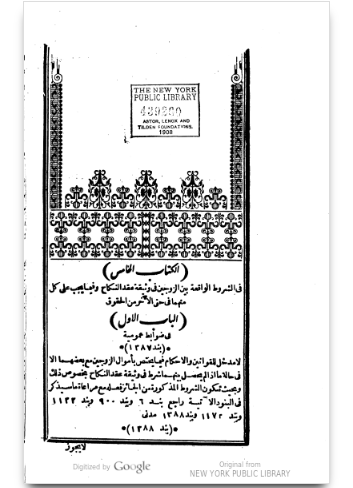 THE NEW YORK
PUBLIC LIBRARY
ASTOR, LENOX AND
TILDEN FOUNDATIONS.
1909
(الكتاب الخامس)
فى الشروط الواقعة بين الزوجين فى وثيقة عقد النكاح وفيما يجب على كل
منهما فى حق الآخر من الحقوق
(الباب الاول)
فى ضوابط عمومية
*(بند ١٣٨٧)*
لا مدخل للقوانين والاحكام فيما يختص بأموال الزوجين مع بعضهما الا
فى حالة ما اذا لم يحصل بينهما شرط فى وثيقة عقد النكاح بخصوص ذلك
وبحيث تكون الشروط المذكورة من الجائز فعلها مع مراعاة ما سيذكر
فى البنود الآتية راجع بند ٦ وبند ٩٠٠ وبند ١١٣٣
وبند ١١٧٢ وبند ١٣٨٨ مدنى
*(بند ١٣٨٨)*
لا يجوز
Digitized by Google
Original from
NEW YORK PUBLIC LIBRARY